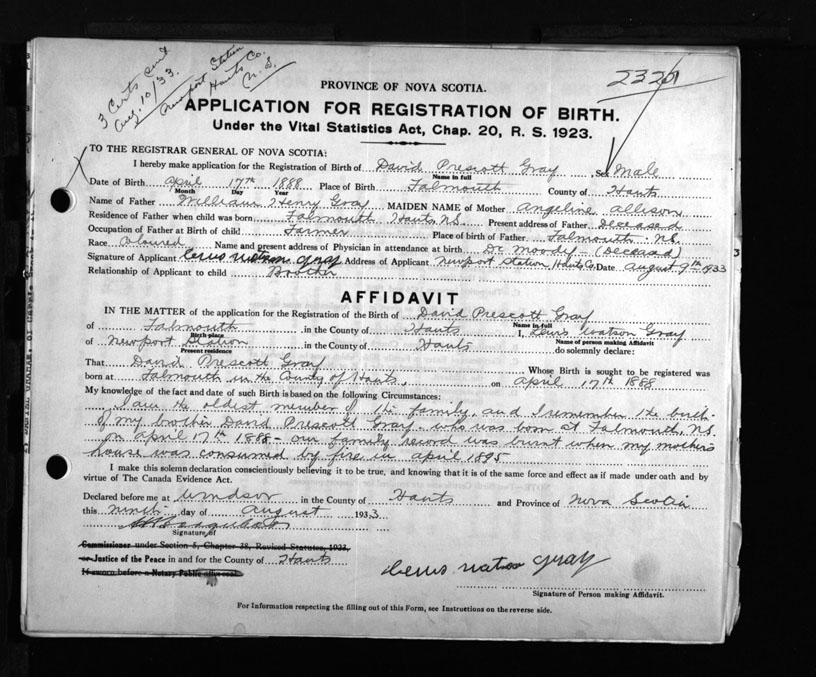 3 Certs sent
Aug. 10/33.
Newport Station
Hants Co.
N.S.
2321
PROVINCE OF NOVA SCOTIA.
APPLICATION FOR REGISTRATION OF BIRTH.
Under the Vital Statistics Act, Chap. 20, R. S. 1923.
TO THE REGISTRAR GENERAL OF NOVA SCOTIA:
I hereby make application for the Registration of Birth of David Prescott Gray, Sex Male
Name in full
Date of Birth April 17th 1888 Place of Birth Falmouth County of Hants
Month Day Year
Name of Father William Henry Gray MAIDEN NAME of Mother Angeline Allison
Residence of Father when child was born Falmouth Hants N.S. Present address of Father Deceased
Occupation of Father at Birth of child Farmer Place of birth of Father Falmouth N.S.
Race Coloured Name and present address of Physician in attendance at birth Dr Moody (Deceased)
Signature of Applicant Lewis Watson Gray Address of Applicant Newport Station Hants Co Date August 9th 1933
Relationship of Applicant to child Brother
AFFIDAVIT
IN THE MATTER of the application for the Registration of the Birth of David Prescott Gray
Name in full
of Falmouth in the County of Hants I, Lewis Watson Gray
Birth place Name of person making Affidavit
of Newport Station in the County of Hants do solemnly declare:
Present residence
That David Prescott Gray Whose Birth is sought to be registered was
born at Falmouth in the County of Hants, on April 17th 1888
My knowledge of the fact and date of such Birth is based on the following Circumstances:
I am the oldest member of the family, and I remember the birth
of my brother David Prescott Gray who was born at Falmouth, N.S.
on April 17th 1888 - our family record was burnt when my mother's
house was consumed by fire in April 1895
I make this solemn declaration conscientiously believing it to be true, and knowing that it is of the same force and effect as if made under oath and by
virtue of The Canada Evidence Act.
Declared before me at Windsor in the County of Hants and Province of Nova Scotia
this ninth day of August 1933
Signature of
Commissioner under Section 5, Chapter 38, Revised Statutes, 1923,
or Justice of the Peace in and for the County of Hants
If sworn before a Notary Public affix seal.
Lewis Watson Gray
Signature of Person making Affidavit.
For Information respecting the filling out of this Form, see Instructions on the reverse side.